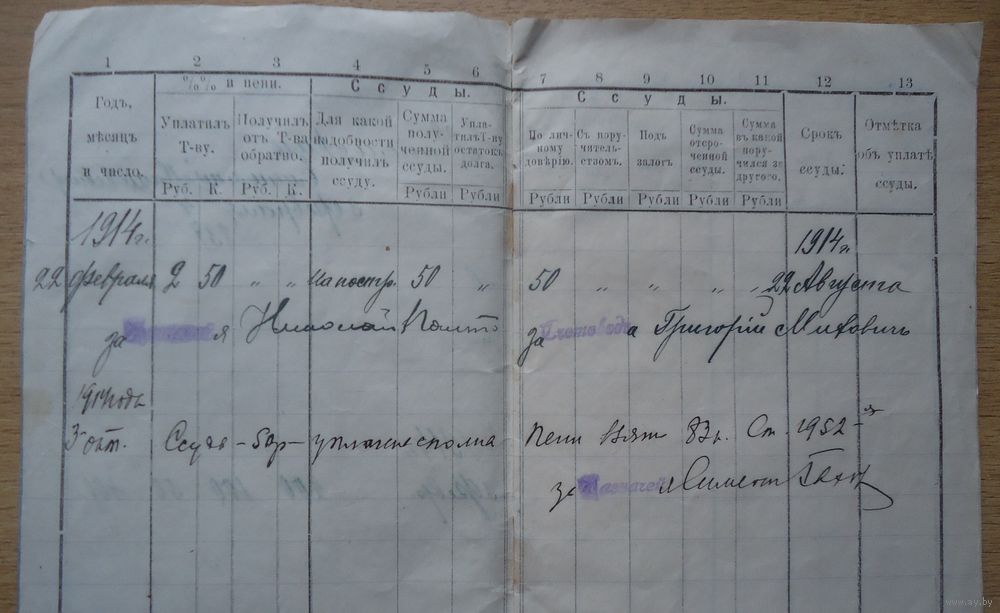 1 2 3 4 5 6 7 8 9 10 11 12 13
Годъ, мѣсяцъ и число.
%% и пени.
Уплатилъ Т-ву.
Руб. К.
Получилъ отъ Т-ва обратно.
Руб. К.
Ссуды.
Для какой надобности получилъ ссуду.
Сумма полученной ссуды.
Рубли
Уплатилъ Т-ву остатокъ долга.
Рубли
Ссуды.
По личному довѣрію.
Рубли
Съ поручительствомъ.
Рубли
Подъ залогъ
Рубли
Сумма отсроченной ссуды.
Рубли
Сумма въ какой поручился за другого.
Рубли
Срокъ ссуды.
Отмѣтка объ уплатѣ ссуды.
1914 г. 1914 г.
22 февраля 2 50 " " на постр. 50 " 50 " " " " 22 Августа
за я Николай за а Григорій Михович
1914 года
3 окт. Ссуда - 50 р - уплачена сполна Пени 83 к. Ст 1952
за Казначея
www.ay.by